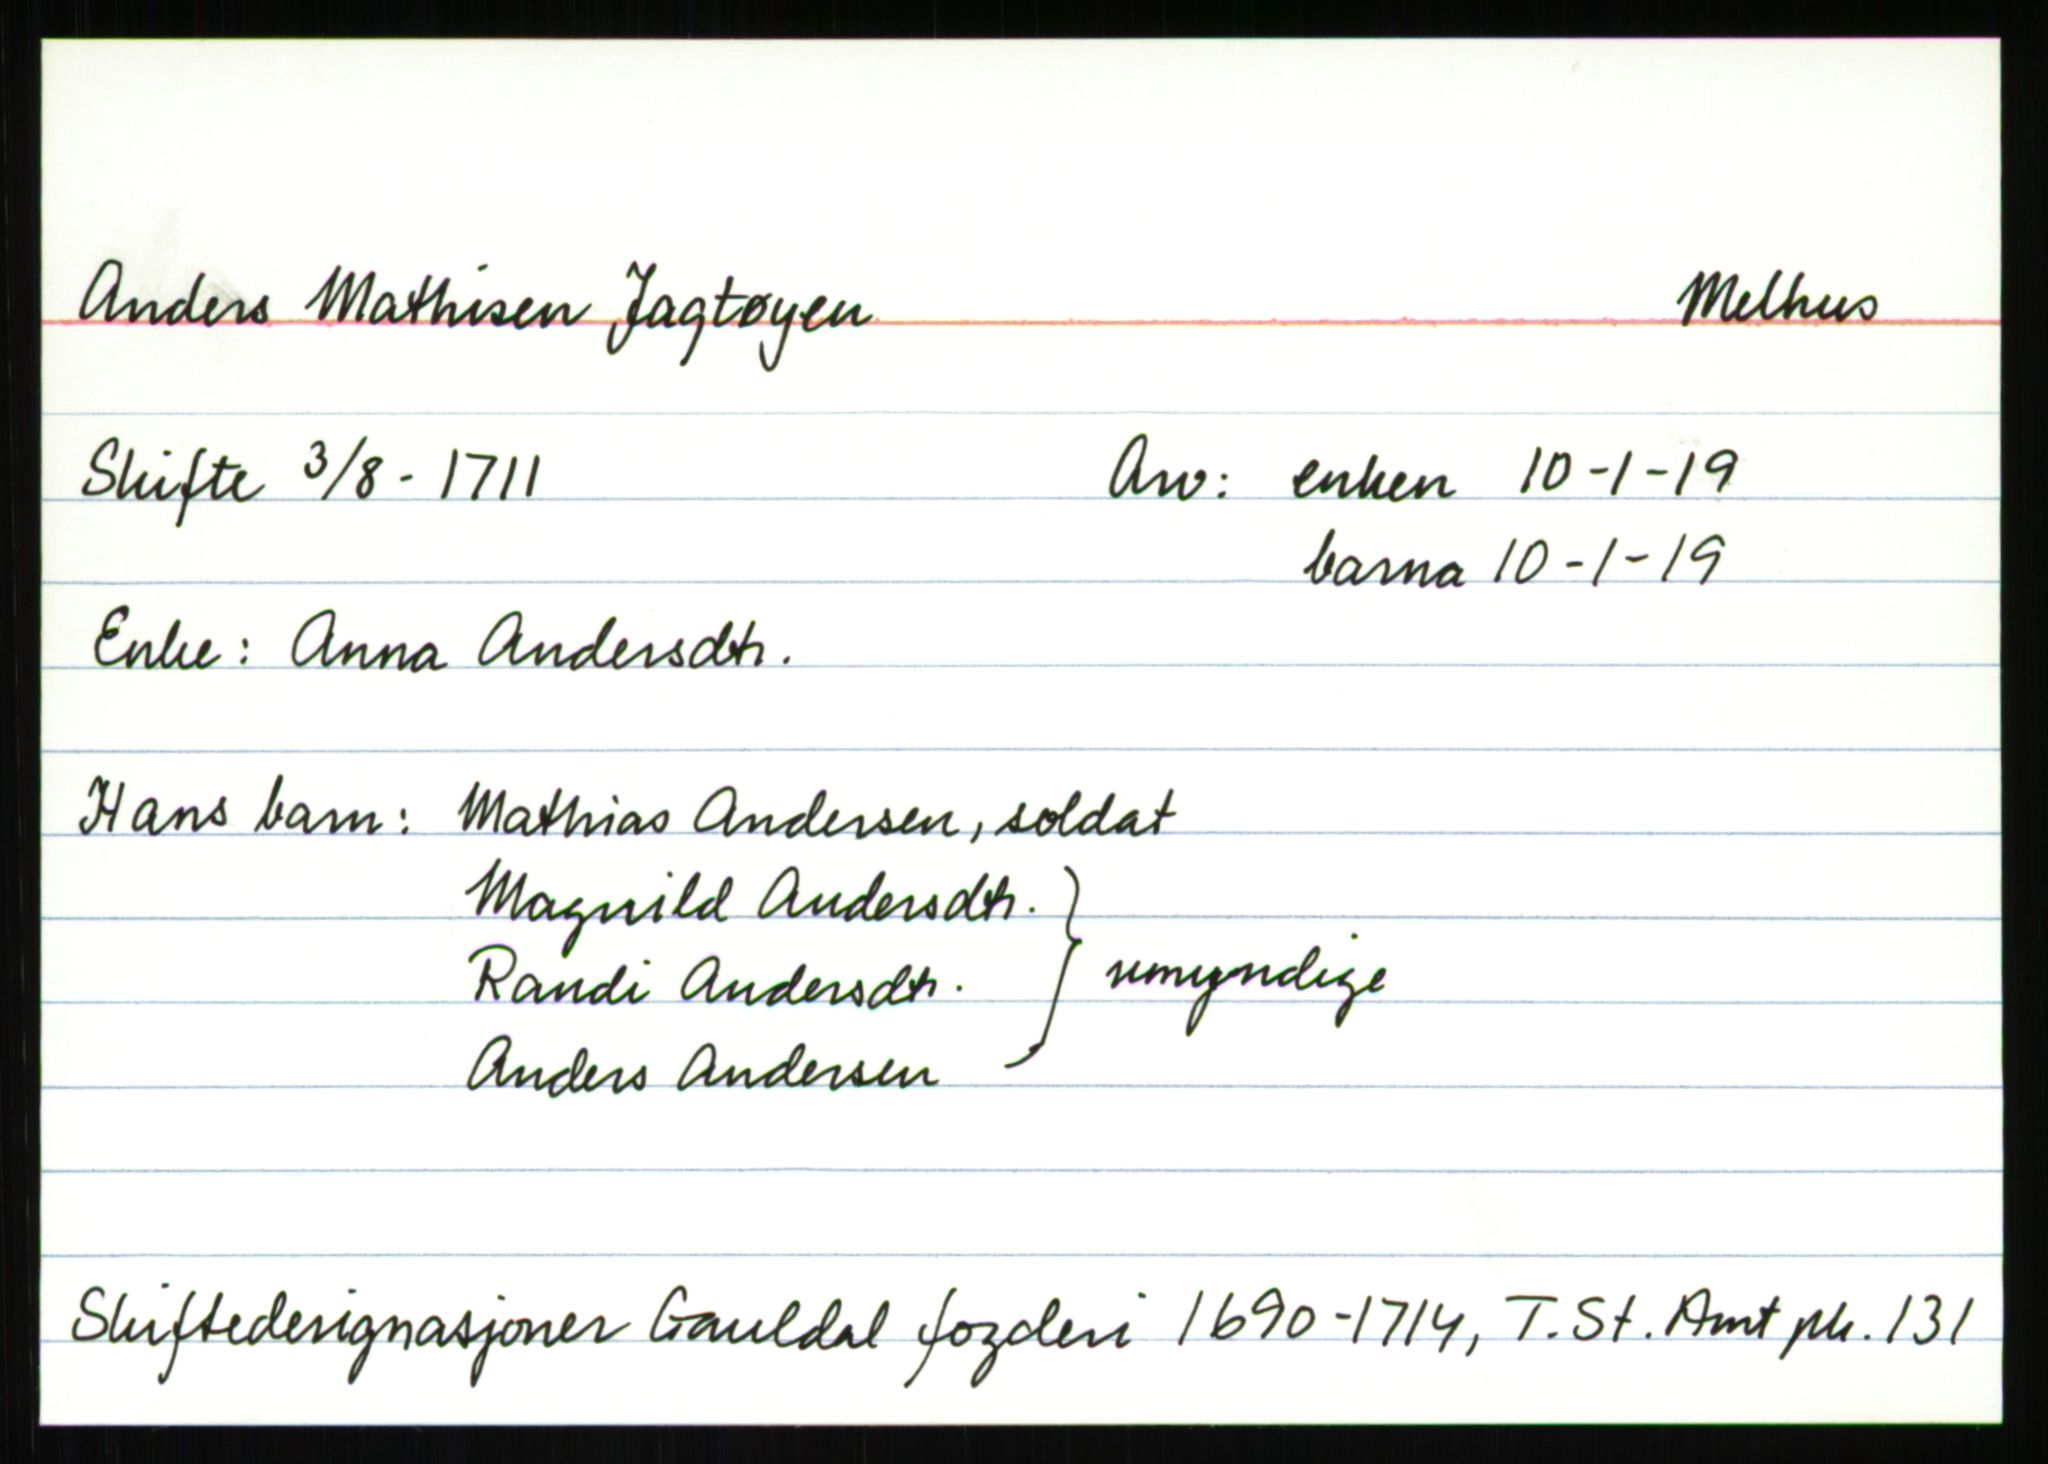 Anders Mathisen Jagtøyen Melhus
Skifte 3/8 - 1711 Arv: enken 10-1-19
barna 10-1-19
Enke: Anna Andersdtr.
Hans barn: Mathias Andersen, soldat
Magnild Andersdtr.
Randi Andersdtr. } umyndige
Anders Andersen
Skiftedesignasjoner Gauldal fogderi 1690-1714, T. St. Amt pk. 131